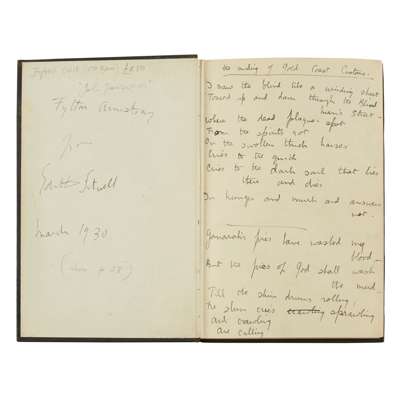 Fytton Armstrong
from
Edith Sitwell
March 1930
the ending of Gold Coast Customs.
I saw the blind like a winding sheet
Tossed up and down through the blind
man's street
Where the dead plague-spot
From the spirit's rot
On the swollen thick houses
Cries to the quick
Cries to the dark soul that lies
there and dies
In hunger and murk, and answers
not.
Gomorrah's fires have washed my
blood
But the fires of God shall wash
the mud
Till the skin drums rolling,
The slum cries sprawling
and crawling
are calling